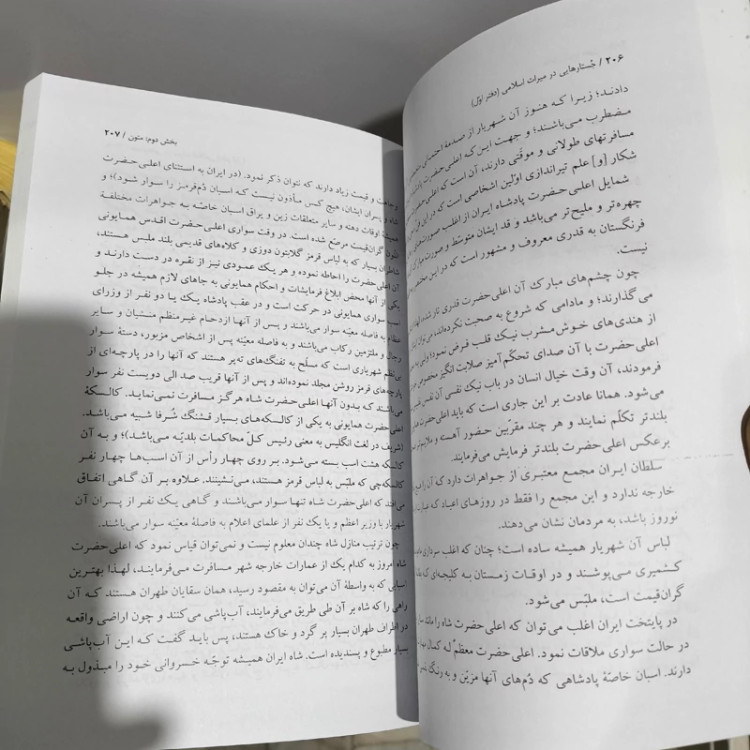 ۲۰۶ / جُستارهایی در میراث اسلامی (دفتر اوّل)
دادند؛ زیرا که هنوز آن شهریار از صدمهٔ
مضطرب می‌باشند؛ و جهت این که اعلی‌حضرت
مسافرتهای طولانی و موقّتی دارند، آن است که
شکار [و] علم تیراندازی اوّلین اشخاصی است که در این
شمایل اعلی‌حضرت پادشاه ایران از اغلب
چهره‌تر و ملیح‌تر می‌باشد و قد ایشان متوسّط و صورت
فرنگستان به قدری معروف و مشهور است که در این
نیست.
چون چشم‌های مبارک آن اعلی‌حضرت قدری تار شده
می‌گذارند؛ و مادامی که شروع به صحبت نکرده‌اند، می‌توان
از هندی‌های خوش‌مشرب نیک قلب فرض نمود؛ ولی
اعلی‌حضرت با آن صدای تحکّم‌آمیز صلابت انگیز مخصوص
فرمودند، آن وقت خیال انسان در باب نیک نفسی آن
می‌شود. همانا عادت بر این جاری است که باید اعلی‌حضرت
بلندتر تکلّم نمایند و هر چند مقرّبین حضور آهسته و
برعکس اعلی‌حضرت بلندتر فرمایش می‌فرمایند.
سلطان ایران مجمع معتبری از جواهرات دارد که آن را
خارجه ندارد و این مجمع را فقط در روزهای اعیاد که
نوروز باشد، به مردمان نشان می‌دهند.
لباس آن شهریار همیشه ساده است؛ چنان که اغلب سرداری
کشمیری می‌پوشند و در اوقات زمستان به کلیجه‌ای که
گران‌قیمت است، ملبّس می‌شود.
در پایتخت ایران اغلب می‌توان که اعلی‌حضرت شاه را
در حالت سواری ملاقات نمود. اعلی‌حضرت معظّمٌ له کمال
دارند. اسبان خاصّهٔ پادشاهی که دُم‌های آنها مزیّن و به رنگ
بخش دوم: متون / ۲۰۷
و قیمت زیاد دارند که نتوان ذکر نمود. (در ایران به استثنای اعلی‌حضرت
شاه و پسران ایشان، هیچ کس مأذون نیست که اسبان دُم‌قرمز را سوار شود)؛ و
اوقات دهنه و سایر متعلّقات زین و یراق اسبان خاصّه به جواهرات مختلفهٔ
گران‌قیمت مرصّع شده است. در وقت سواری اعلی‌حضرت اقدس همایونی
شاطران بسیار که به لباس قرمز گلابتون دوزی و کلاه‌های قدیمی بلند ملبّس هستند،
آن اعلی‌حضرت را احاطه نموده و هر یک عمودی نیز از نقره در دست دارند و
یکی از آنها محض ابلاغ فرمایشات و احکام همایونی به جاهای لازم همیشه در جلو
سواری همایونی در حرکت است و در عقب پادشاه یک یا دو نفر از وزرای
عظام به فاصله معیّنه سوار می‌باشند و پس از آنها ازدحام غیرمنظم منشیان و سایر
رجال و ملتزمین رکاب می‌باشند و به فاصله معیّنه پس از اشخاص مزبور، دستهٔ سوار
بی‌نظم شهریاری است که مسلّح به تفنگ‌های ته‌پر هستند که آنها را در پارچه‌ای از
پارچه‌های قرمز روشن مجلد نموده‌اند و پس از آنها قریب صد الی دویست نفر سوار
می‌باشند که بدون آنها اعلی‌حضرت شاه هرگز مسافرت نمی‌نماید. کالسکهٔ
اعلی‌حضرت همایونی به یکی از کالسکه‌های بسیار قشنگ شُرفا شبیه می‌باشد.
(شریف در لغت انگلیس به معنی رئیس کلّ محاکمات بلدیّه می‌باشد)؛ و به آن
کالسکه هشت اسب بسته می‌شود. بر روی چهار رأس از آن اسب‌ها چهار نفر
کالسکه‌چی که ملبّس به لباس قرمز هستند، می‌نشینند. علاوه بر آن گاهی اتفاق
می‌افتد که اعلی‌حضرت شاه تنها سوار می‌باشند و گاهی یک نفر از پسران آن
شهریار با وزیر اعظم و یا یک نفر از علمای اعلام به فاصلهٔ معیّنه سوار می‌باشند.
چون ترتیب منازل شاه چندان معلوم نیست و نمی‌توان قیاس نمود که اعلی‌حضرت
شاه امروز به کدام یک از عمارات خارجه شهر مسافرت می‌فرمایند، لهذا بهترین
اسبابی که به واسطهٔ آن می‌توان به مقصود رسید، همان سقایان طهران هستند که آن
راهی را که شاه بر آن طی طریق می‌فرمایند، آب‌پاشی می‌کنند و چون اراضی واقعه
در اطراف طهران بسیار پر گرد و خاک هستند، پس باید گفت که این آب‌پاشی
بسیار مطبوع و پسندیده است. شاه ایران همیشه توجّه خسروانی خود را مبذول به